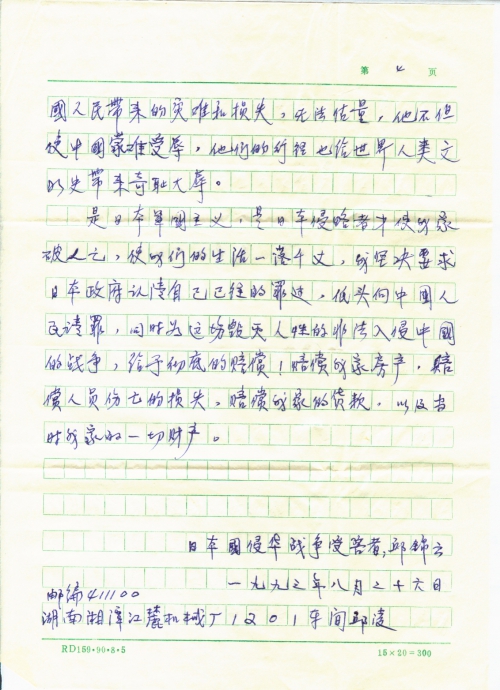 第 4 页
國人民带来的灾难和损失，无法估量，他不但
使中國蒙难受辱，他们的行径也给世界人类文
明史带来奇耻大辱。
是日本軍國主义，是日本侵略者才使我家
破人亡，使我们的生活一落千丈，我坚决要求
日本政府认清自己已往的罪过，低头向中國人
民请罪，同时为这场毁灭人性的非法入侵中國
的战争，给予彻底的赔偿！赔偿我家房产，赔
偿人员伤亡的损失，赔偿我家的货款，以及当
时我家的一切财产。
日本國侵华战争受害者，邱锦云
一九九三年八月二十六日
邮编411100
湖南湘潭江麓机械厂1201车间邱凌
RD159·90·8·5
15×20=300